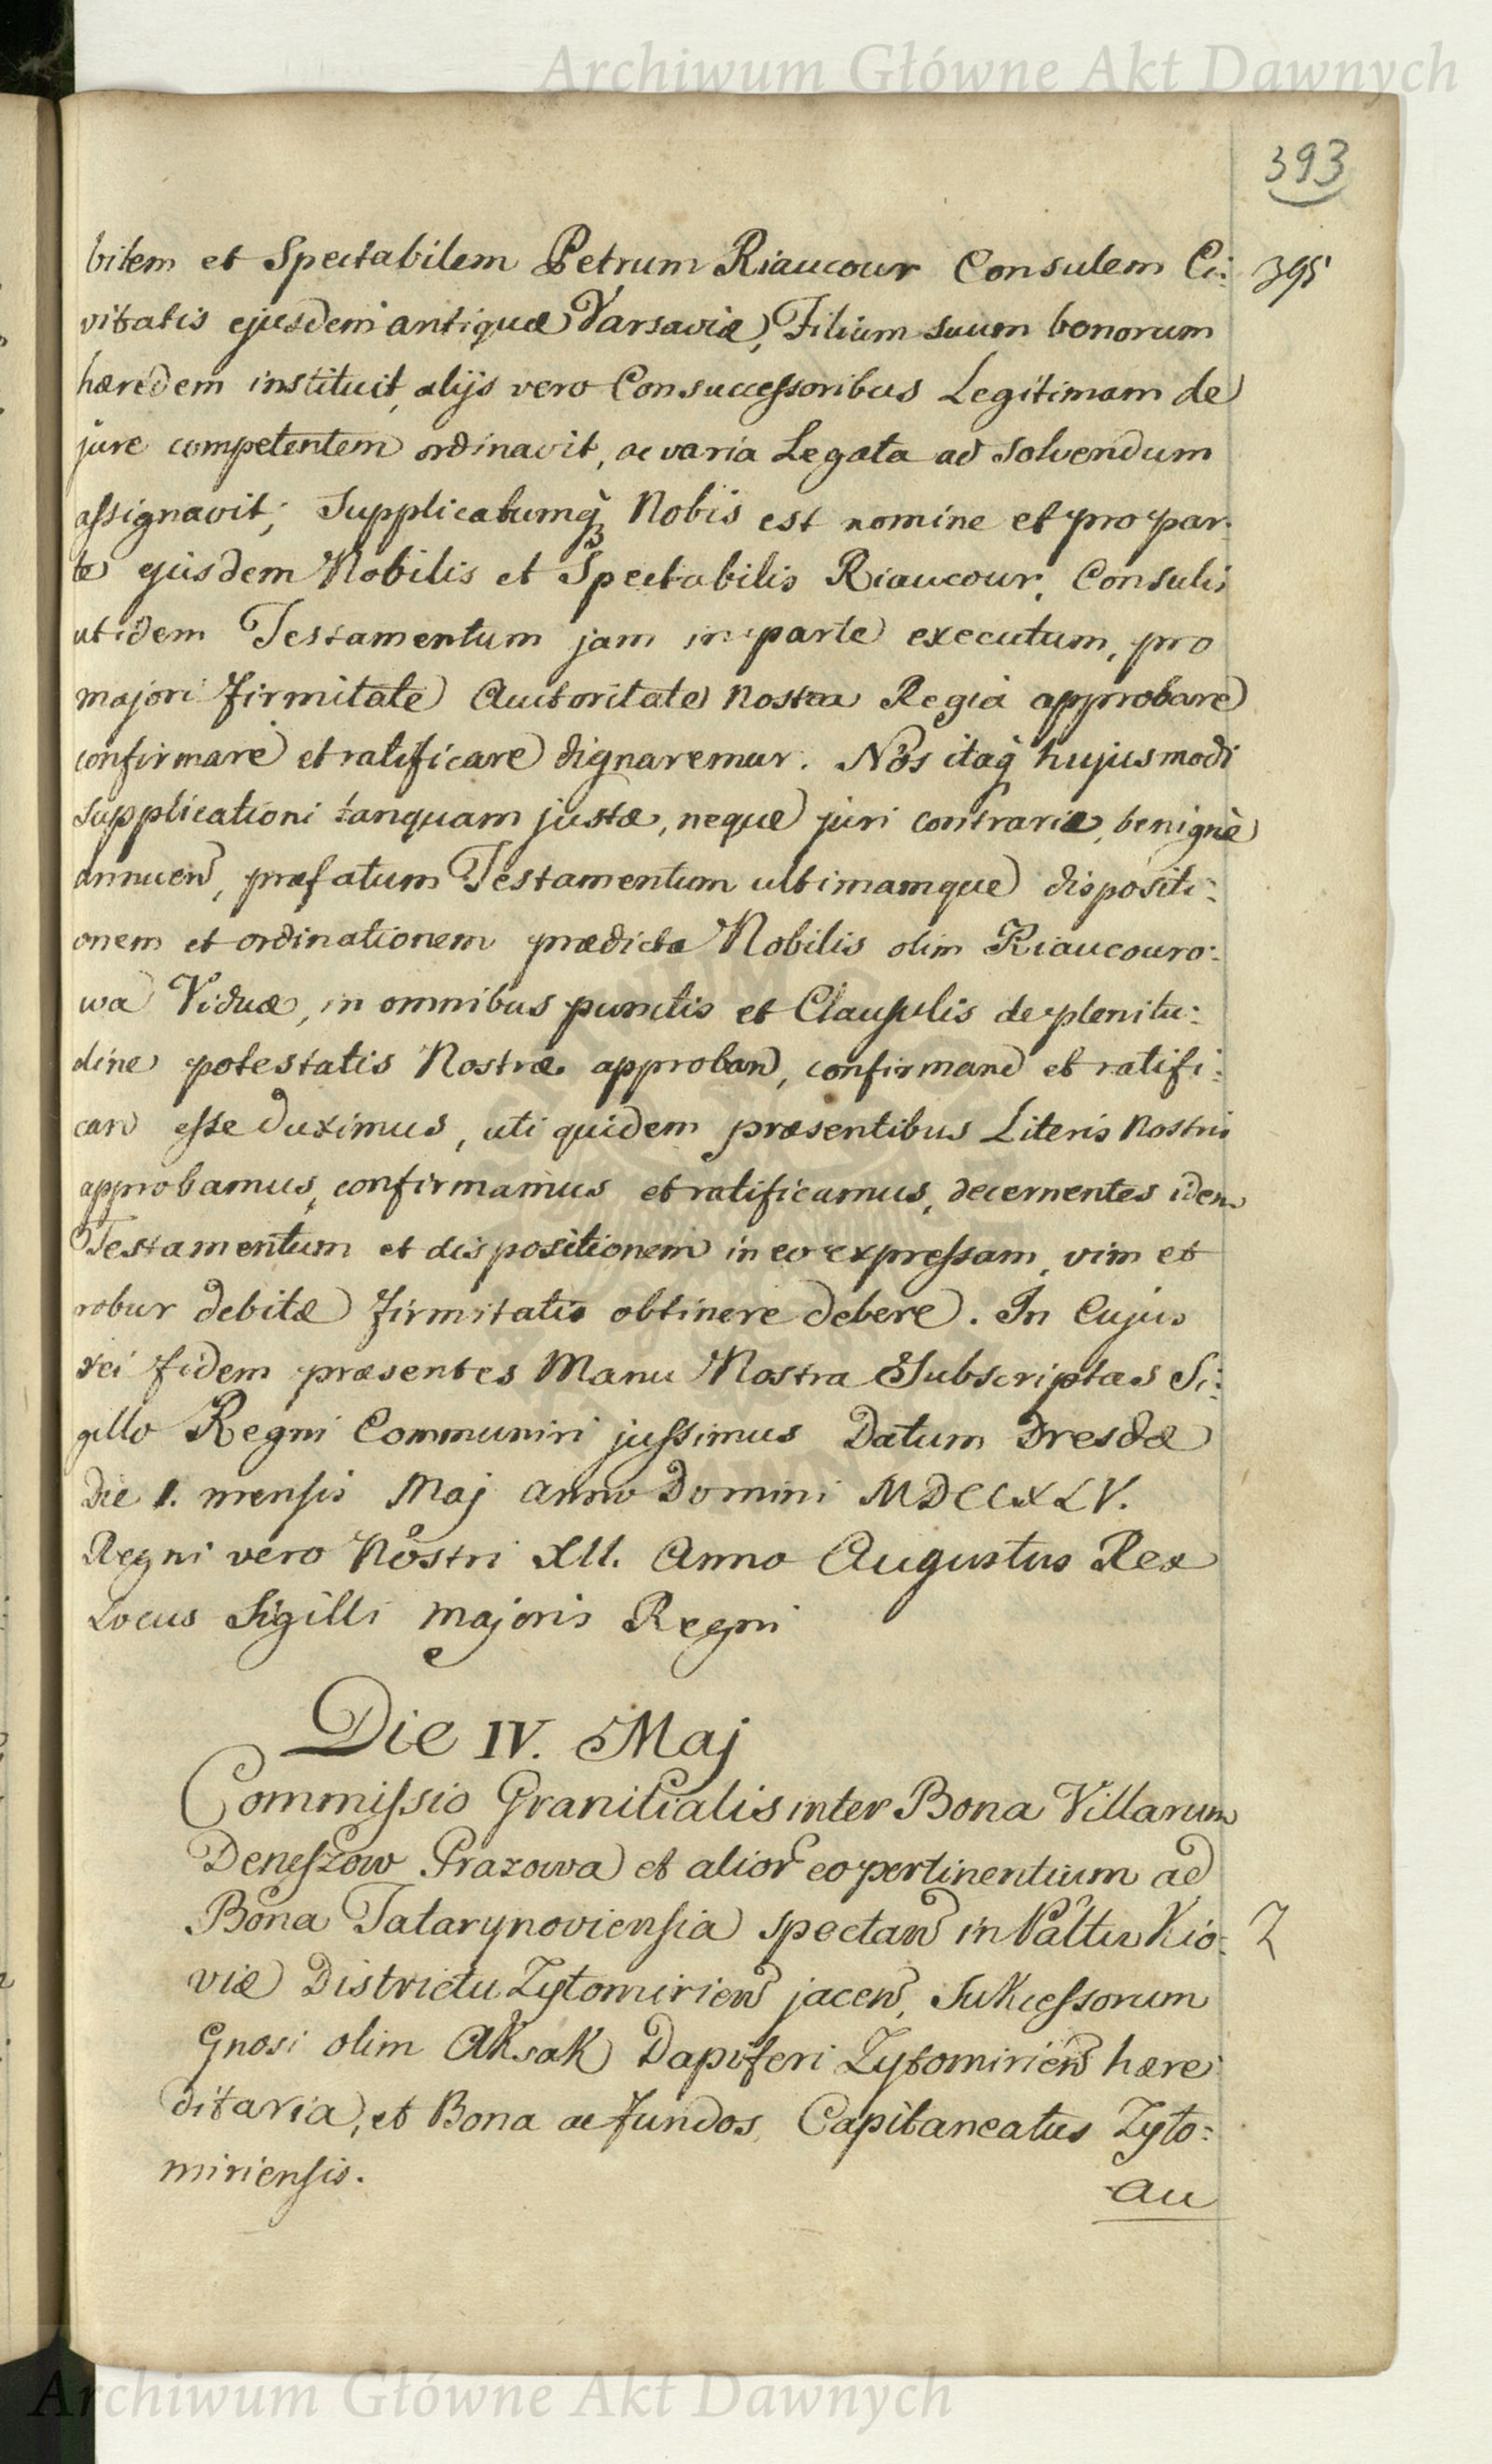 Archiwum Główne Akt Dawnych
393
bilem et Spectabilem Petrum Riaucour Consulem Ci:
395
vitatis ejusdem antiquæ Varsaviæ, Filium suum bonorum
hæredem instituit, alijs vero Consuccessoribus Legitimam de
jure competentem ordinavit, ac varia Legata ad solvendum
assignavit; Supplicatumq̀ Nobis est nomine et pro par:
te ejusdem Nobilis et Spectabilis Riaucour, Consulis
ut idem Testamentum jam in parte executum, pro
majori firmitate Auctoritate nostra Regia approbare
confirmare et ratificare dignaremur. Nos itaq̀ hujusmodi
supplicationi tanquam justæ, neque juri contrariæ, benignè
annuen, præfatum Testamentum ultimamque dispositi:
onem et ordinationem prædictæ Nobilis olim Riaucouro:
wa Viduæ, in omnibus punctis et Clausulis de plenitu:
dine potestatis Nostræ approban, confirmand et ratifi:
can esse duximus, uti quidem præsentibus Literis nostris
approbamus, confirmamus et ratificamus, decernentes idem
Testamentum et dispositionem in eo expressam, vim et
robur debitæ firmitatis obtinere debere. In Cujus
rei fidem præsentes Manu Nostra Subscriptas Si:
gillo Regni Communiri jussimus Datum Dresdæ
Die 1. mensis Maj Anno Domini MDCCXLV.
Regni vero Nostri XII. Anno Augustus Rex
Locus Sigilli majoris Regni
Die IV. Maj
Commissio Granitialis inter Bona Villarum
Deneszow Prazowa et alior eo pertinentium ad
Bona Tatarynoviensia spectan in Palttu Kio:
viæ Districtu Zytomirien jacen, Sukcessorum
Gnosi olim Aksak Dapiferi Zytomirien hære
ditaria, et Bona ac fundos Capitaneatus Zyto:
miriensis.
au
Archiwum Główne Akt Dawnych